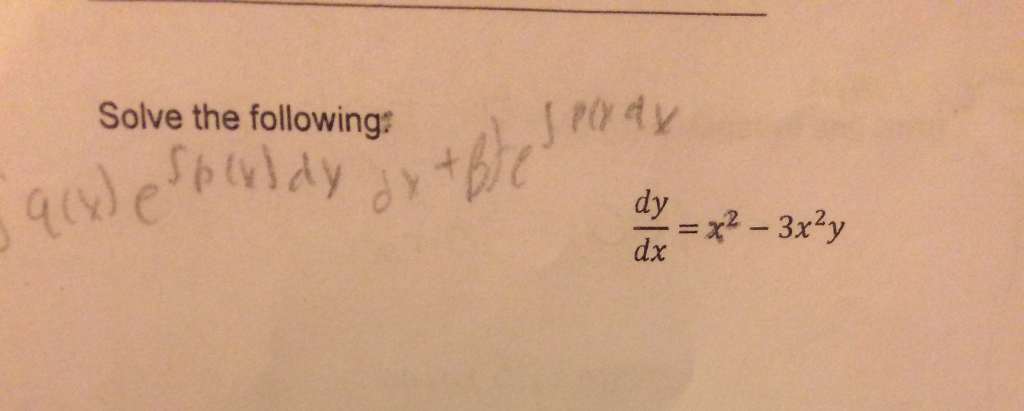 Solve the following:
∫ q(x) e^{∫p(x)dy} dx + β) e^{∫ p(x) dx}
dy/dx = x² − 3x²y